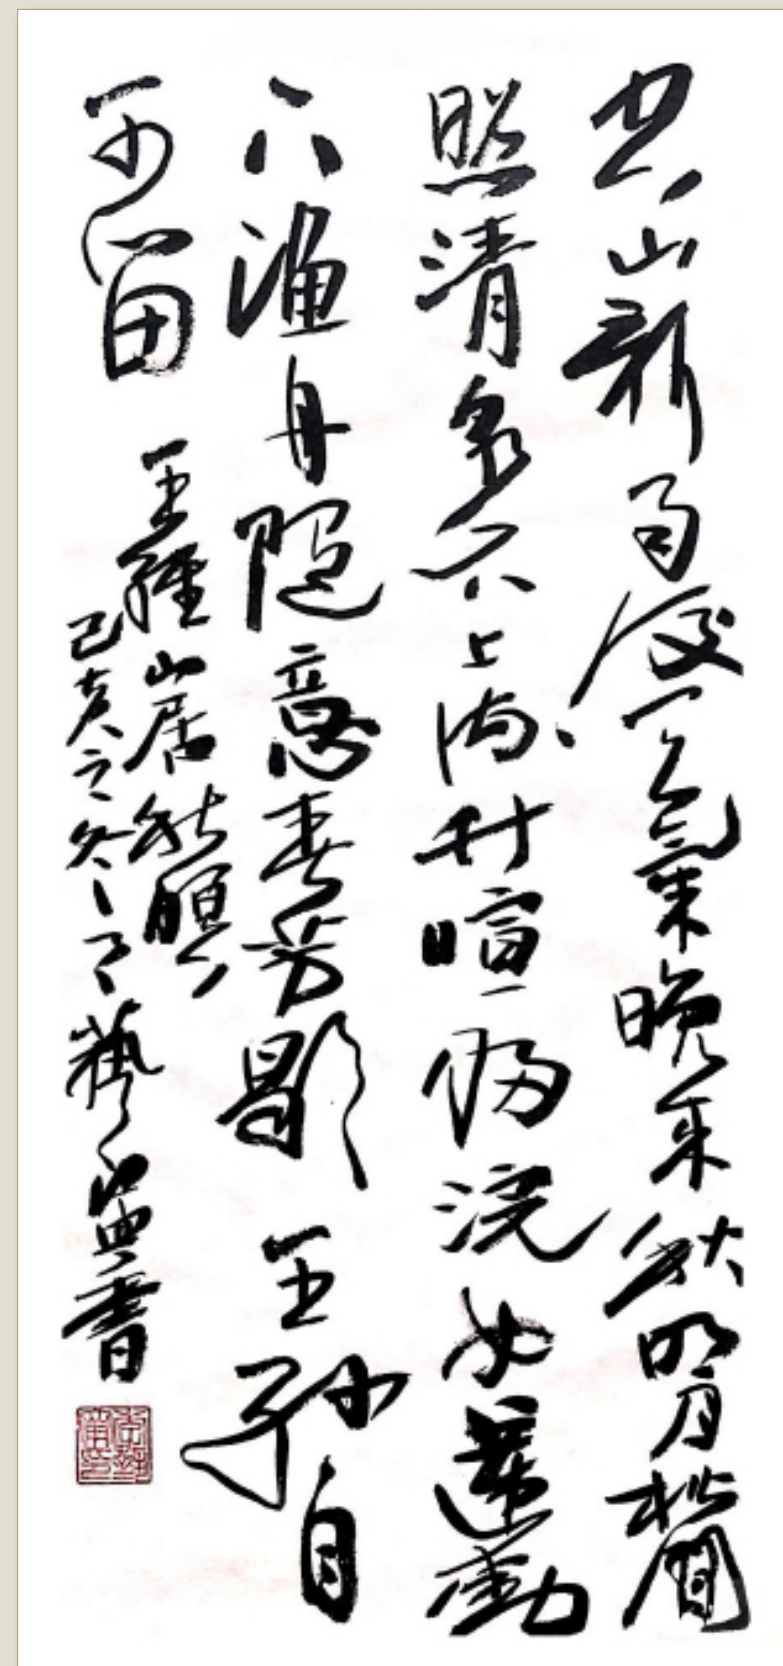 空山新雨後天氣晚来秋明月松間
照清泉石上流竹喧歸浣女蓮動
下漁舟随意春芳歇王孫自
可留 王維山居秋暝
己亥之冬 藝 書